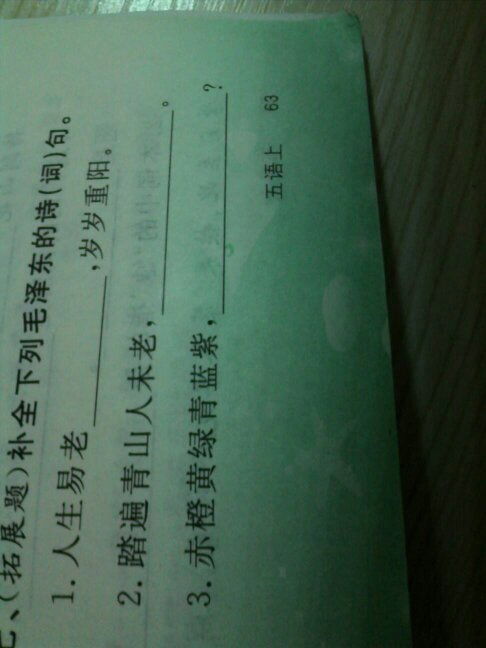 七、(拓展题)补全下列毛泽东的诗(词)句。
1. 人生易老________,岁岁重阳。
2. 踏遍青山人未老,________________。
3. 赤橙黄绿青蓝紫,________________?
五语上 63